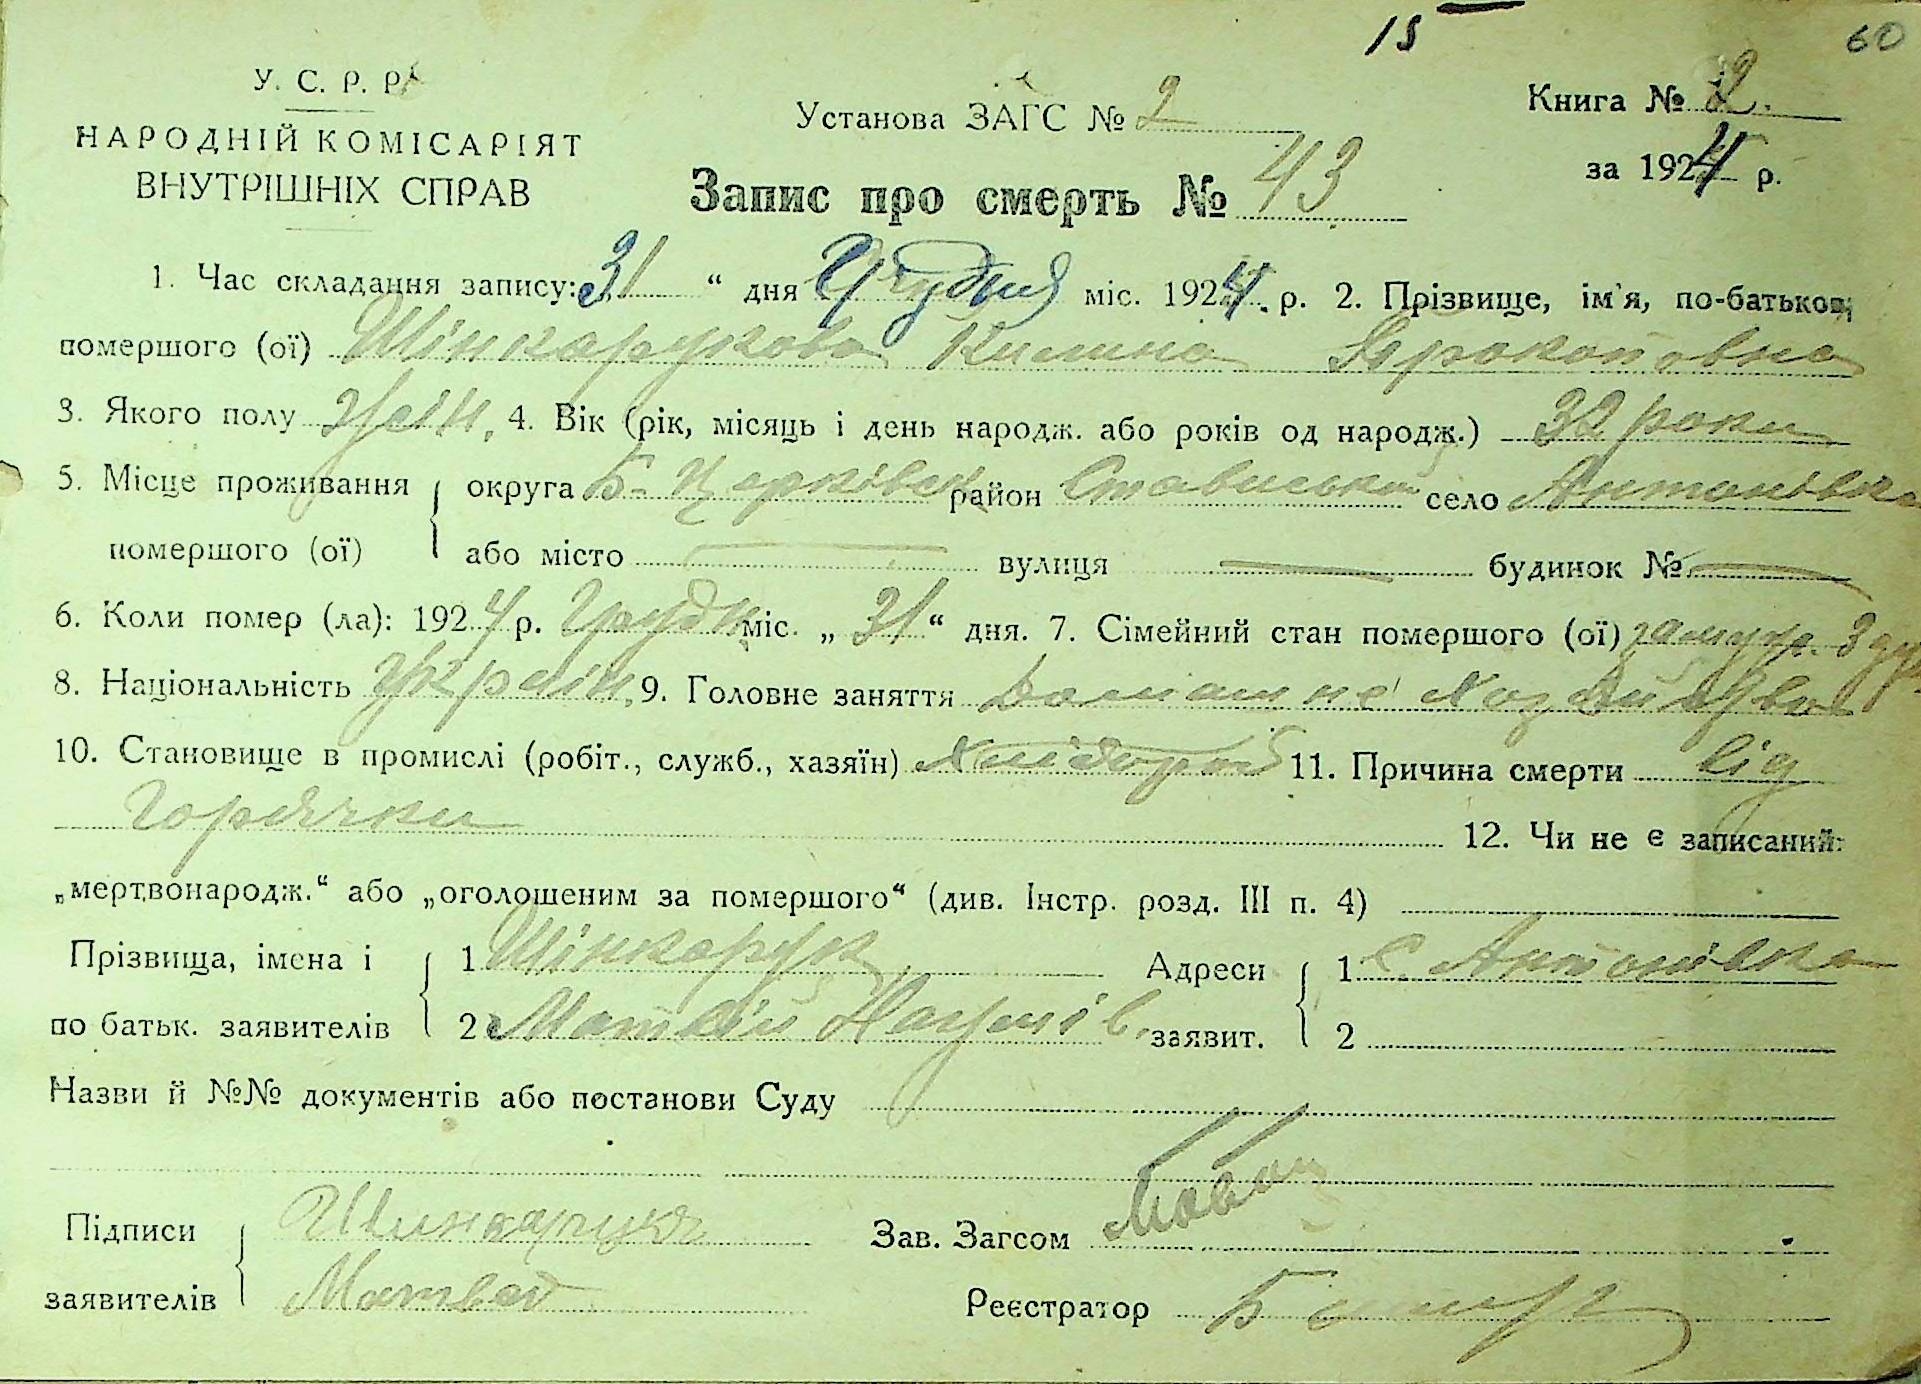 15 60
У. С. Р. Р.
НАРОДНІЙ КОМІСАРІЯТ
ВНУТРІШНІХ СПРАВ
Установа ЗАГС № 2
Книга № 2.
за 1924 р.
Запис про смерть № 43
1. Час складання запису: 31 “ дня Грудня міс. 1924. р. 2. Прізвище, ім'я, по-батькові
помершого (ої) Шінкарукова Килина Прокоповна
3. Якого полу жін. 4. Вік (рік, місяць і день народж. або років од народж.) 32 роки
5. Місце проживання округа Б-Церківськ район Стависький село Антонівка
помершого (ої) або місто — вулиця — будинок № —
6. Коли помер (ла): 1924 р. Грудн міс. „ 31 “ дня. 7. Сімейний стан помершого (ої) замуж.
8. Національність Україн. 9. Головне заняття Домашне Хозяйство
10. Становище в промислі (робіт., служб., хазяїн) Хлібороб 11. Причина смерти від
горячки 12. Чи не є записаний:
„мертвонародж.“ або „оголошеним за помершого“ (див. Інстр. розд. III п. 4)
Прізвища, імена і 1 Шінкарук Адреси 1 с. Антонівка
по батьк. заявителів 2 Матвій Наумів. заявит. 2
Назви й №№ документів або постанови Суду
Підписи Шинкарук Зав. Загсом
заявителів Матвей Реєстратор